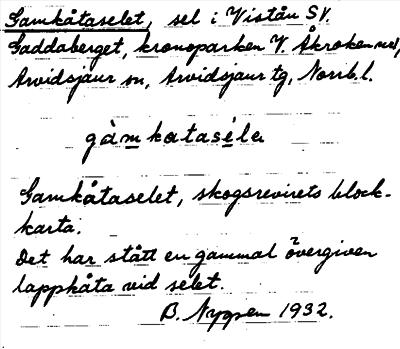 Gamkåtaselet, sel i Vistån SV.
Gaddaberget, kronoparken V. Åkroken m.m,
Arvidsjaur sn, Arvidsjaur tg, Norrb.l.
gàmkatasèle
Gamkåtaselet, skogsrevirets block-
karta.
Det har stått en gammal övergiven
lappkåta vid selet.
B. Nygren 1932.